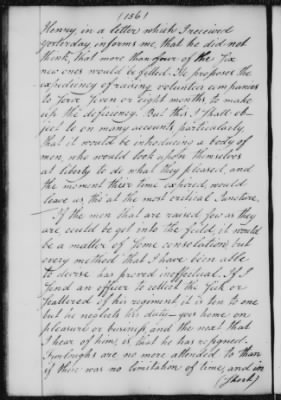 (136)
Henry, in a letter which I received
yesterday, informs me, that he did not
think, that more than four of the Six
new ones would be filled. He proposes the
expediency of raising volunteer companies
to serve seven or eight months, to make
up the deficiency. But this I shall ob-
ject to on many accounts, particularly,
that it would be introducing a body of
men, who would look upon themselves
at liberty to do what they pleased, and
the moment their time expired, would
leave us tho' at the most critical Juncture.
If the men that are raised few as they
are, could be got into the field, it would
be a matter of some consolation, but
every method that I have been able
to devise has proved ineffectual. If I
send an officer to collect the Sick or
scattered of his regiment, it is ten to one
but he neglects his duty — goes home on
pleasure or business, and the next that
I hear of him, is that he has resigned.
Furloughs are no more attended to than
if there was no limitation of time, and in
(Short)